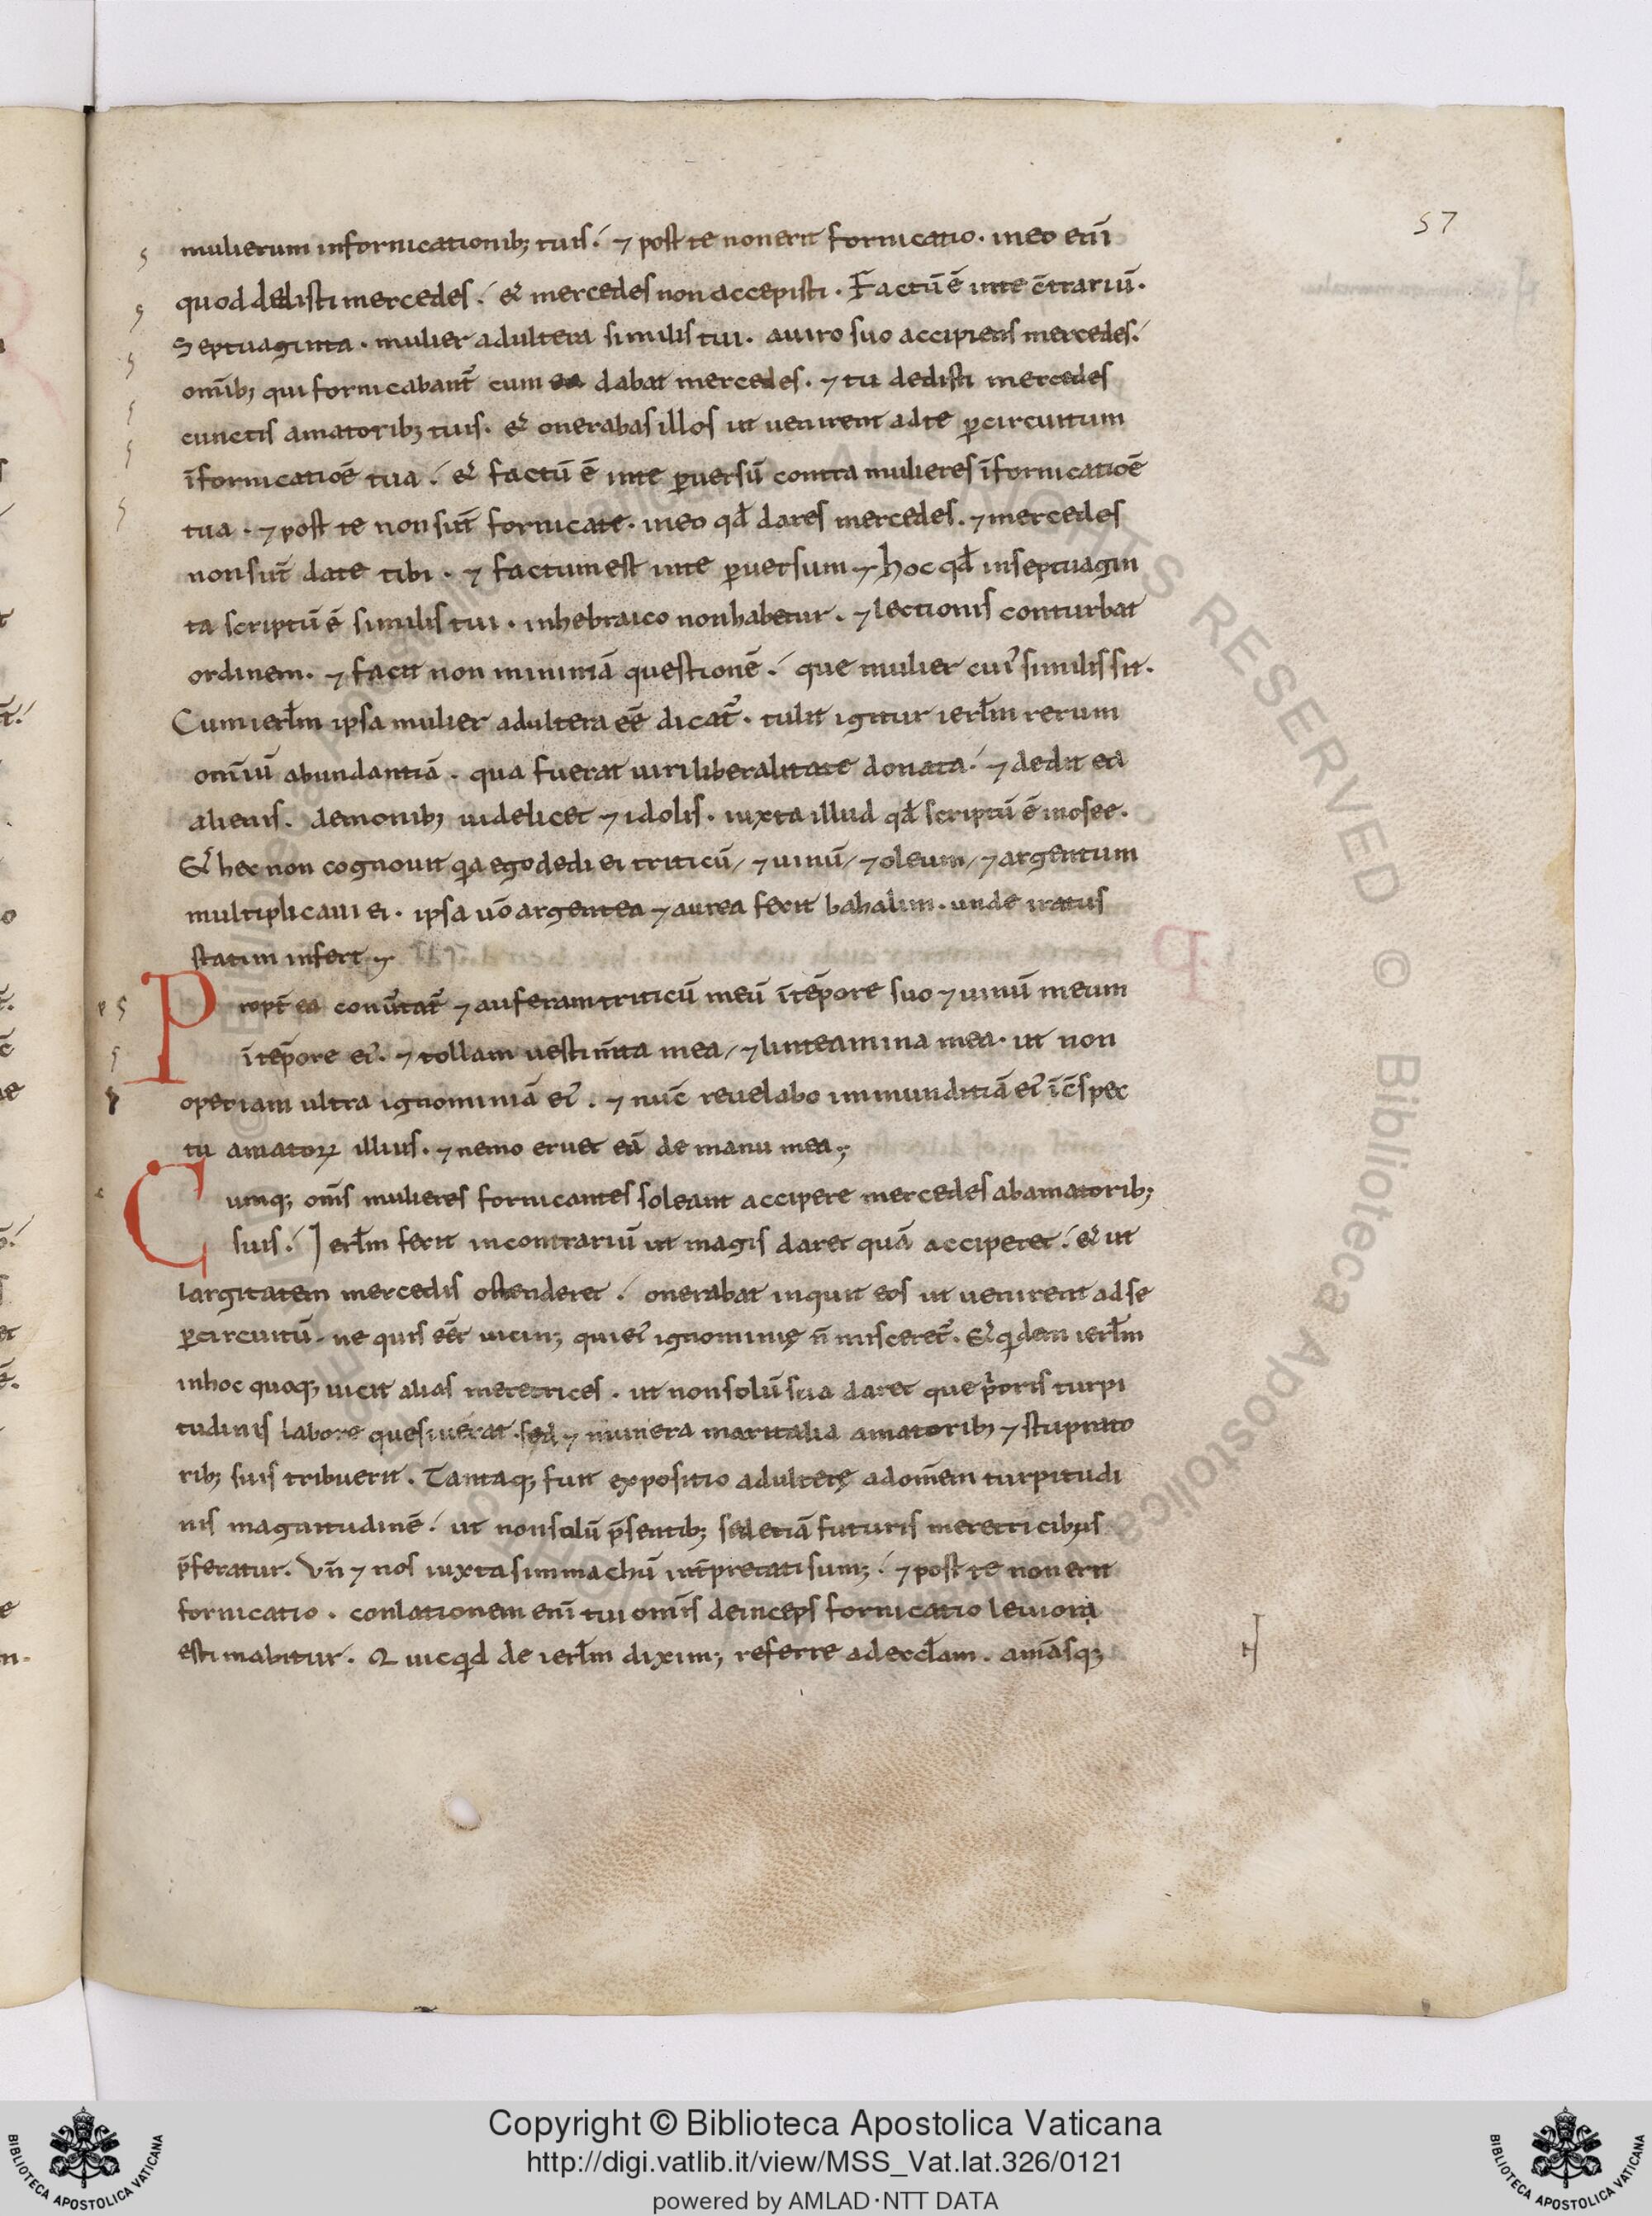 57
mulierum in fornicationib; tuis. ⁊ post te non erit fornicatio. in eo eni̅
quod dedisti mercedes. & mercedes non accepisti. Factu̅ e̅ in te c̅trariu̅.
Septuaginta. mulier adultera similis tui. a uiro suo accipiens mercedes.
om̅ib; qui fornicabant̅ cum ea dabat mercedes. ⁊ tu dedisti mercedes
cunctis amatorib; tuis. & onerabas illos ut uenirent ad te p̲circuitum
i̅ fornicatio̅e tua. & factu̅ e̅ in te p̲uersu̅ contra mulieres i̅ fornicatio̅e
tua. ⁊ post te non sut̅ fornicate. in eo qd̅ dares mercedes. ⁊ mercedes
non sut̅ date tibi. ⁊ factum est in te p̲uersum. hoc qd̅ in septuagin
ta scriptu̅ e̅ similis tui. in hebraico non habetur. ⁊ lectionis conturbat
ordinem. ⁊ facit non minima̅ questione̅. que mulier cui᾽ similis sit.
Cum ierl̅m ipsa mulier adultera ee̅ dicat᾽. tulit igitur ierl̅m rerum
om̅iu̅ abundantia̅. qua fuerat uiri liberalitate donata. ⁊ dedit ea
alienis. demonib; uidelicet ⁊ idolis. iuxta illud qd̅ scriptu̅ e̅ in osee.
& hec non cognouit qa ego dedi ei triticu̅, ⁊ uinu̅, ⁊ oleum, ⁊ argentum
multiplicaui ei. ipsa uo̅ argentea ⁊ aurea fecit bahalim. unde iratus
statim infert.
Propt̅ ea conu̅tat᾽ ⁊ auferam triticu̅ meu̅ i̅ te̅pore suo ⁊ uinu̅ meum
i̅ te̅pore ei᾽. ⁊ tollam uestim̅ta mea, ⁊ linteamina mea. ut non
operiam ultra ignominia̅ ei᾽. ⁊ nuc̅ reuelabo immunditia̅ ei᾽ i̅ c̅spec
tu amatoꝝ illius. ⁊ nemo eruet ea̅ de manu mea;
Cumq; om̅s mulieres fornicantes soleant accipere mercedes ab amatorib;
suis. Ierl̅m fecit in contrariu̅ ut magis daret qua̅ acciperet. & ut
largitatem mercedis ostenderet. onerabat inquit eos ut uenirent ad se
p̲circuitu̅. ne quis ee̅t uicin; qui ei᾽ ignominię n̅ misceret᾽. & qdem ierl̅m
in hoc quoq; uicit alias meretrices. ut non solu̅ sua daret que p̅oris turpi
tudinis labore quesiuerat. sed ⁊ munera maritalia amatorib; ⁊ stuprato
rib; suis tribuerit. Tantaq; fuit expositio adulterę ad om̅em turpitudi
nis magnitudine̅. ut non solu̅ p̅sentib; sed etia̅ futuris meretricib;us
p̅feratur. Vn̅ ⁊ nos iuxta simmachu̅ int̅pretati sum;. ⁊ post te non erit
fornicatio. conlationem eni̅ tui om̅is deinceps fornicatio leuiora
estimabitur. Quicqd de ierl̅m dixim; referre ad eccl̅am. ama̅sq;
Copyright © Biblioteca Apostolica Vaticana
http://digi.vatlib.it/view/MSS_Vat.lat.326/0121
powered by AMLAD·NTT DATA
BIBLIOTECA APOSTOLICA VATICANA
BIBLIOTECA APOSTOLICA VATICANA